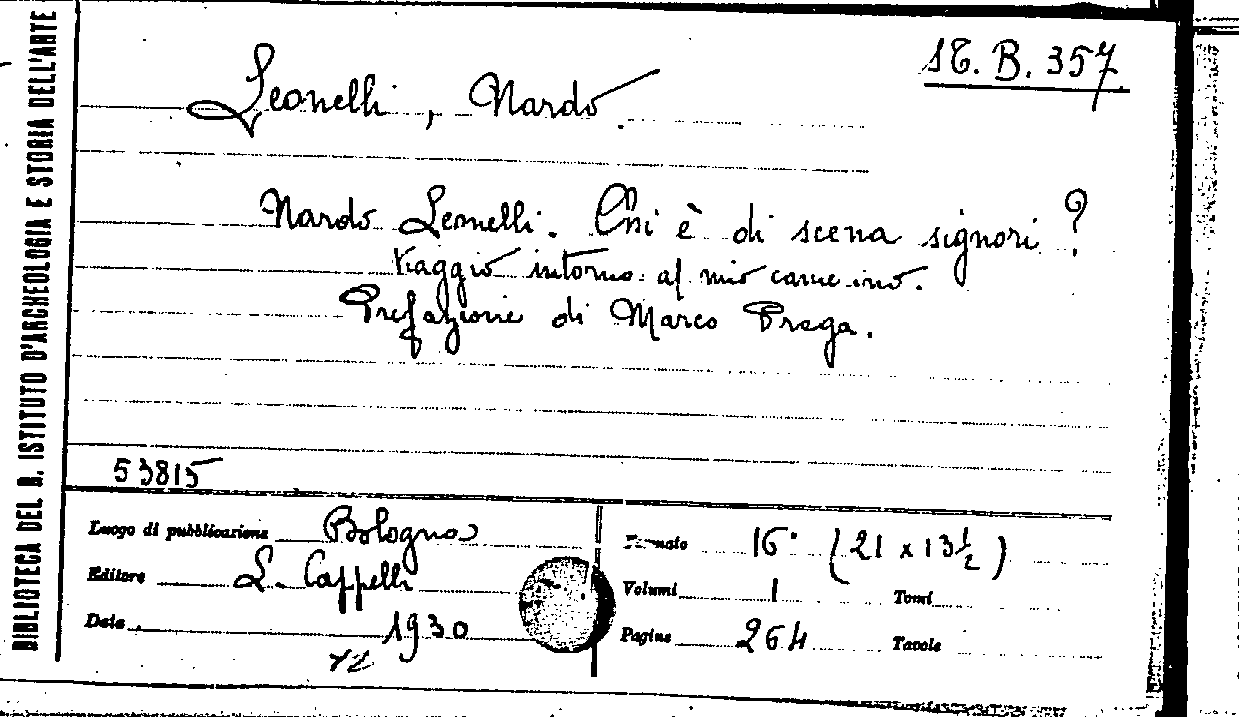 BIBLIOTECA DEL R. ISTITUTO D'ARCHEOLOGIA E STORIA DELL'ARTE
ST. B. 357
Leonelli, Nardo.
Nardo Leonelli. Chi è di scena signori?
Viaggio intorno al mio camerino.
Prefazione di Marco Praga.
53815
Luogo di pubblicazione Bologna
Editore L. Cappelli
Data 1930
Formato 16° (21 x 13 1/2)
Volumi 1 Tomi
Pagine 264 Tavole